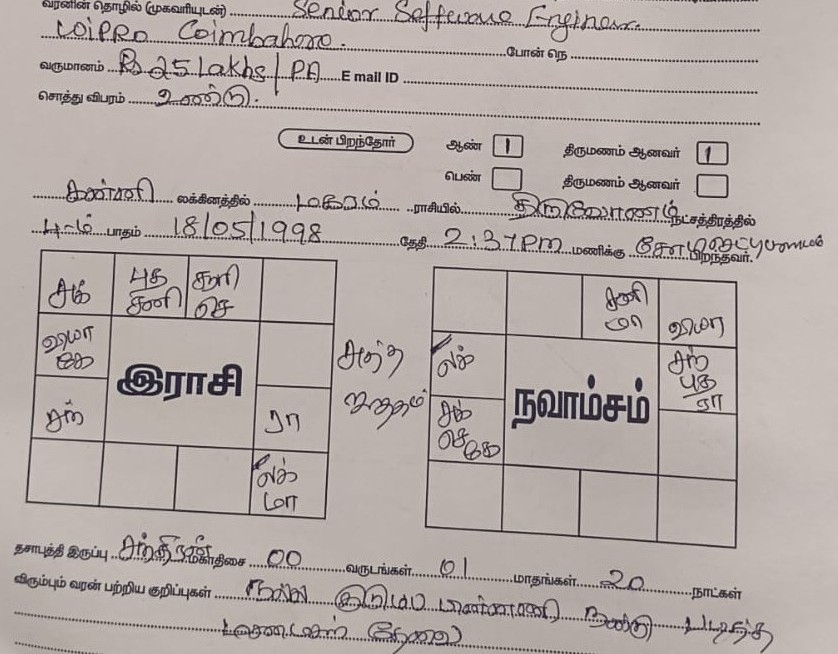 வரனின் தொழில் (முகவரியுடன்) Senior Software Engineer.
WIPRO Coimbatore. போன் நெ
வருமானம் Rs 25 lakhs / PA E mail ID
சொத்து விபரம் உண்டு.
உடன் பிறந்தோர் ஆண் 1 திருமணம் ஆனவர் 1
பெண் திருமணம் ஆனவர்
கன்னி லக்கினத்தில் மகரம் ராசியில் திருவோணம் நட்சத்திரத்தில்
4-ம் பாதம் 18/05/1998 தேதி 2:37PM மணிக்கு பிறந்தவர்.
சுக் புத சனி சூரி செ
வியா கே
இராசி
சந் ரா
லக் மா
சூரி மா வியா
லக் சந் புத ரா
நவாம்சம்
சுக் செ கே
தசாபுத்தி இருப்பு சந்திரன் மகாதிசை 00 வருடங்கள் 01 மாதங்கள் 20 நாட்கள்
விரும்பும் வரன் பற்றிய குறிப்புகள் நல்ல குடும்ப நன்கு படித்த
மணமகள் தேவை